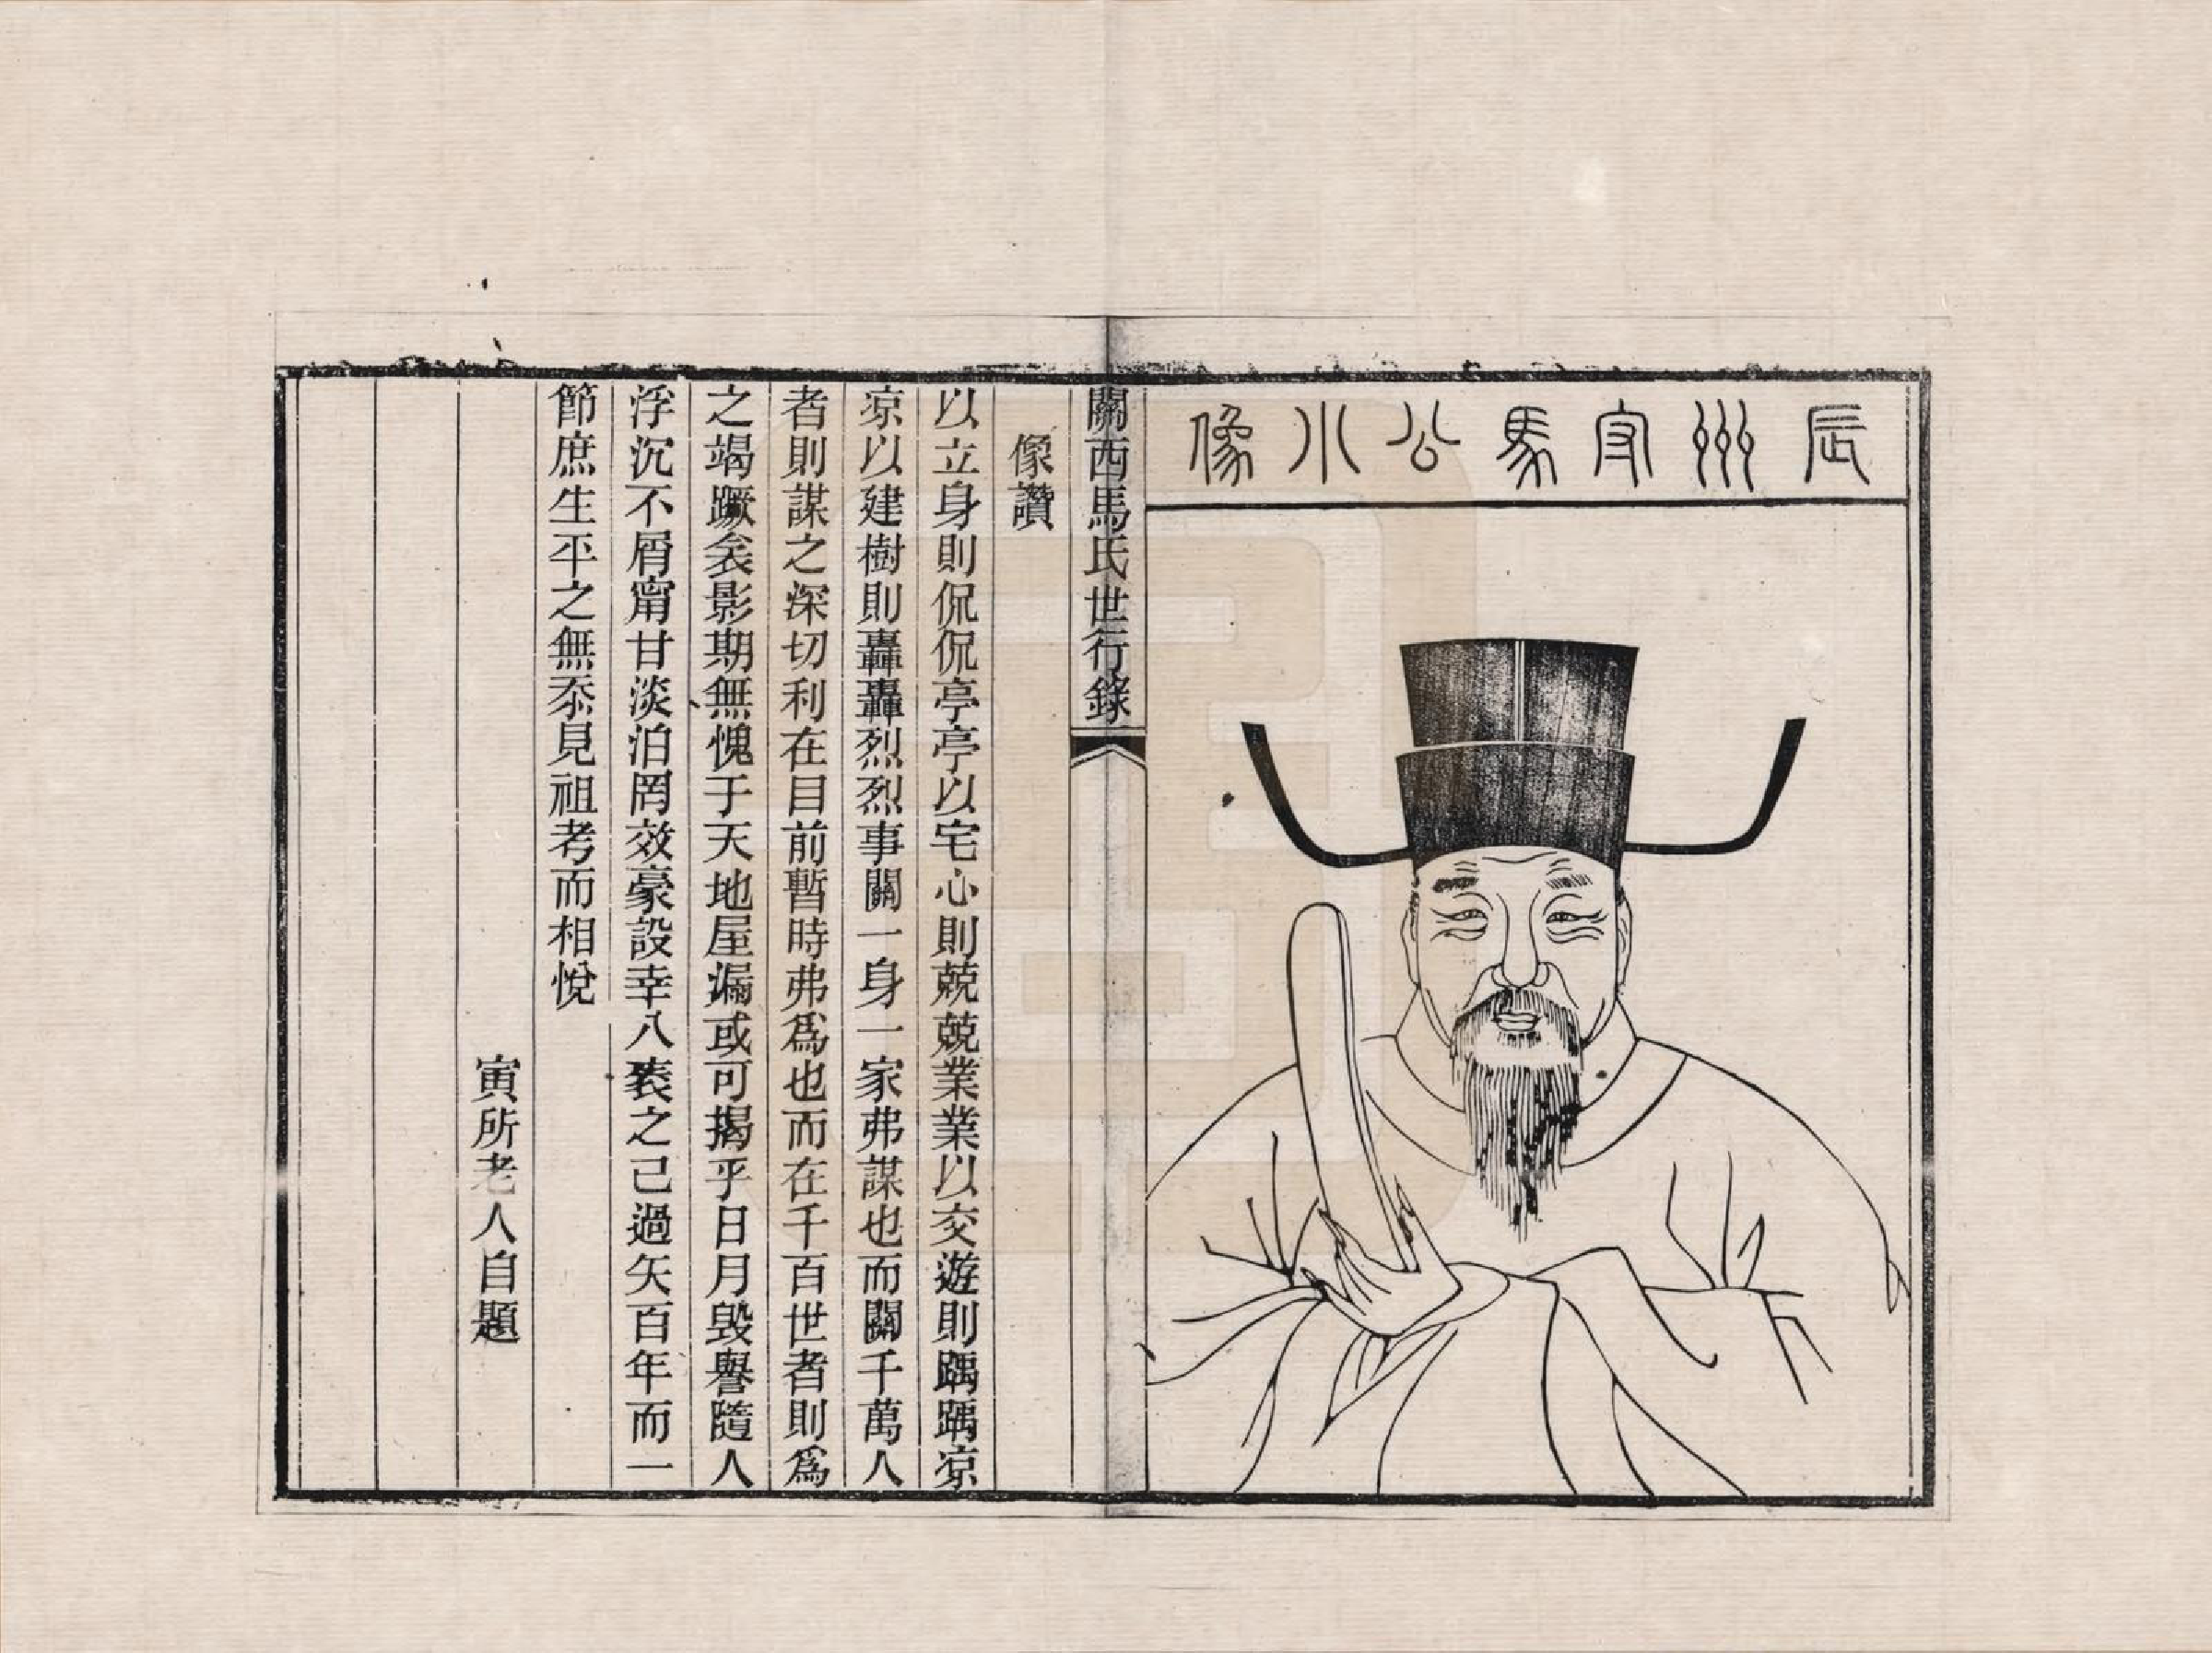 辰州守馬公小像
關西馬氏世行錄
像讚
以立身則侃侃亭亭以宅心則兢兢業業以交遊則踽踽凉
凉以建樹則轟轟烈烈事關一身一家弗謀也而關千萬人
者則謀之深切利在目前暫時弗爲也而在千百世者則爲
之竭蹶衾影期無愧于天地屋漏或可揭乎日月毁譽隨人
浮沉不屑甯甘淡泊罔效豪設幸八袠之已過矢百年而一
節庶生平之無忝見祖考而相悅
寅所老人自題